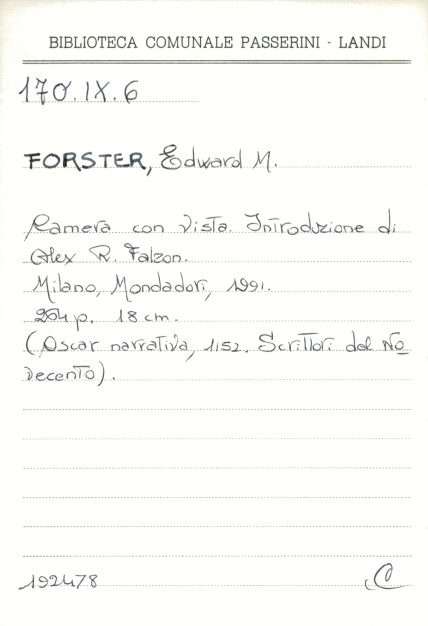 BIBLIOTECA COMUNALE PASSERINI - LANDI
170.IX.6
FORSTER, Edward M.
Camera con vista. Introduzione di
Alex R. Falzon.
Milano, Mondadori, 1991.
254 p. 18 cm.
(Oscar narrativa, 1152. Scrittori del No
vecento).
192478 C